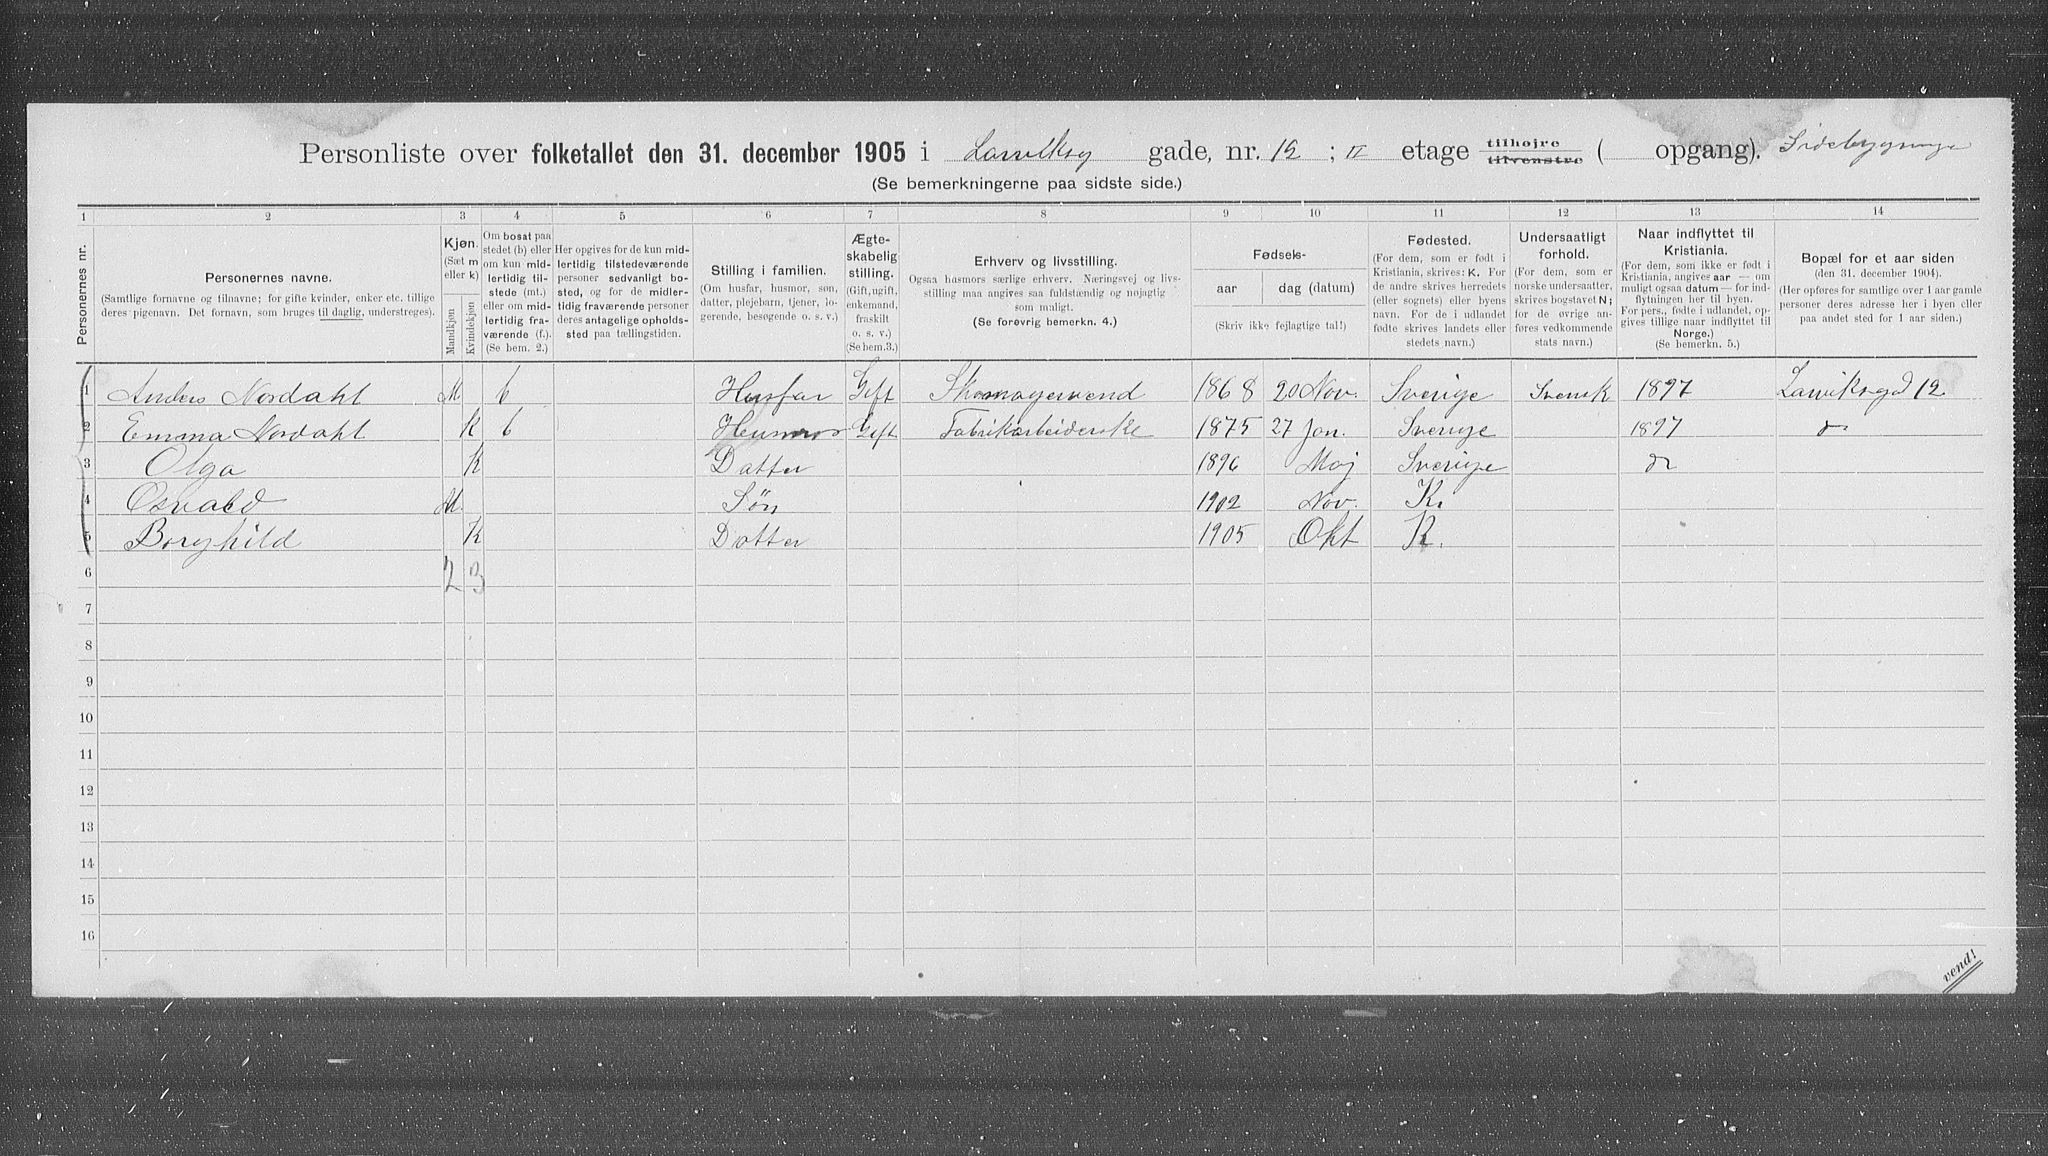 Personliste over folketallet den 31. december 1905 i Larviksg gade, nr. 12 ; II etage tilhøjre tilvenstre ( opgang). Sidebygninge
(Se bemerkningerne paa sidste side.)
1 2 3 4 5 6 7 8 9 10 11 12 13 14
Personernes nr.
Personernes navne.
(Samtlige fornavne og tilnavne; for gifte kvinder, enker etc. tillige
deres pigenavn. Det fornavn, som bruges til daglig, understreges).
Kjøn.
(Sæt m
eller k)
Mandkjøn
Kvindekjøn
Om bosat paa
stedet (b) eller
om kun mid-
lertidig til-
stede (mt.)
eller om mid-
lertidig fra-
værende (f.).
(Se bem. 2.)
Her opgives for de kun mid-
lertidig tilstedeværende
personer sedvanligt bo-
sted, og for de midler-
tidig fraværende personer
deres antagelige opholds-
sted paa tællingstiden.
Stilling i familien.
(Om husfar, husmor, søn,
datter, plejebarn, tjener, lo-
gerende, besøgende o. s. v.)
Ægte-
skabelig
stilling.
(Gift, ugift,
enkemand,
fraskilt
o. s. v.)
(Se bem.3.)
Erhverv og livsstilling.
Ogsaa husmors særlige erhverv. Næringsvej og livs-
stilling maa angives saa fuldstændig og nøjagtig
som muligt.
(Se forøvrig bemerkn. 4.)
Fødsels-
aar dag (datum)
(Skriv ikke fejlagtige tal!)
Fødested.
(For dem, som er født i
Kristiania, skrives: K. For
de andre skrives herredets
(eller sognets) eller byens
navn. For de i udlandet
fødte skrives landets eller
stedets navn.)
Undersaatligt
forhold.
(For dem, som er
norske undersaatter,
skrives bogstavet N;
for de øvrige an-
føres vedkommende
stats navn.)
Naar indflyttet til
Kristiania.
(For dem, som ikke er født i
Kristiania, angives aar – om
muligt ogsaa datum – for ind-
flytningen her til byen.
For pers., fødte i udlandet, op-
gives tillige naar indflyttet til
Norge.)
(Se bemerkn. 5.)
Bopæl for et aar siden
(den 31. december 1904).
(Her opføres for samtlige over 1 aar gamle
personer deres adresse her i byen eller
paa andet sted for 1 aar siden.)
1 Anders Nordahl M b Husfar Gift Skomagersvend 1868 20 Nov. Sverige Svensk 1897 Larviksgd 12
2 Emma Nordahl K b Husmor Gift Fabrikarbeiderske 1875 27 Jan. Sverige 1897 do
3 Olga K Datter 1896 Maj Sverige do
4 Osvald M Søn 1902 Nov. K.
5 Borghild K Datter 1905 Okt K.
6 2 3
7
8
9
10
11
12
13
14
15
16
vend!